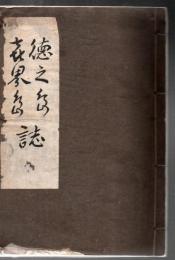 德之島
喜界島 誌